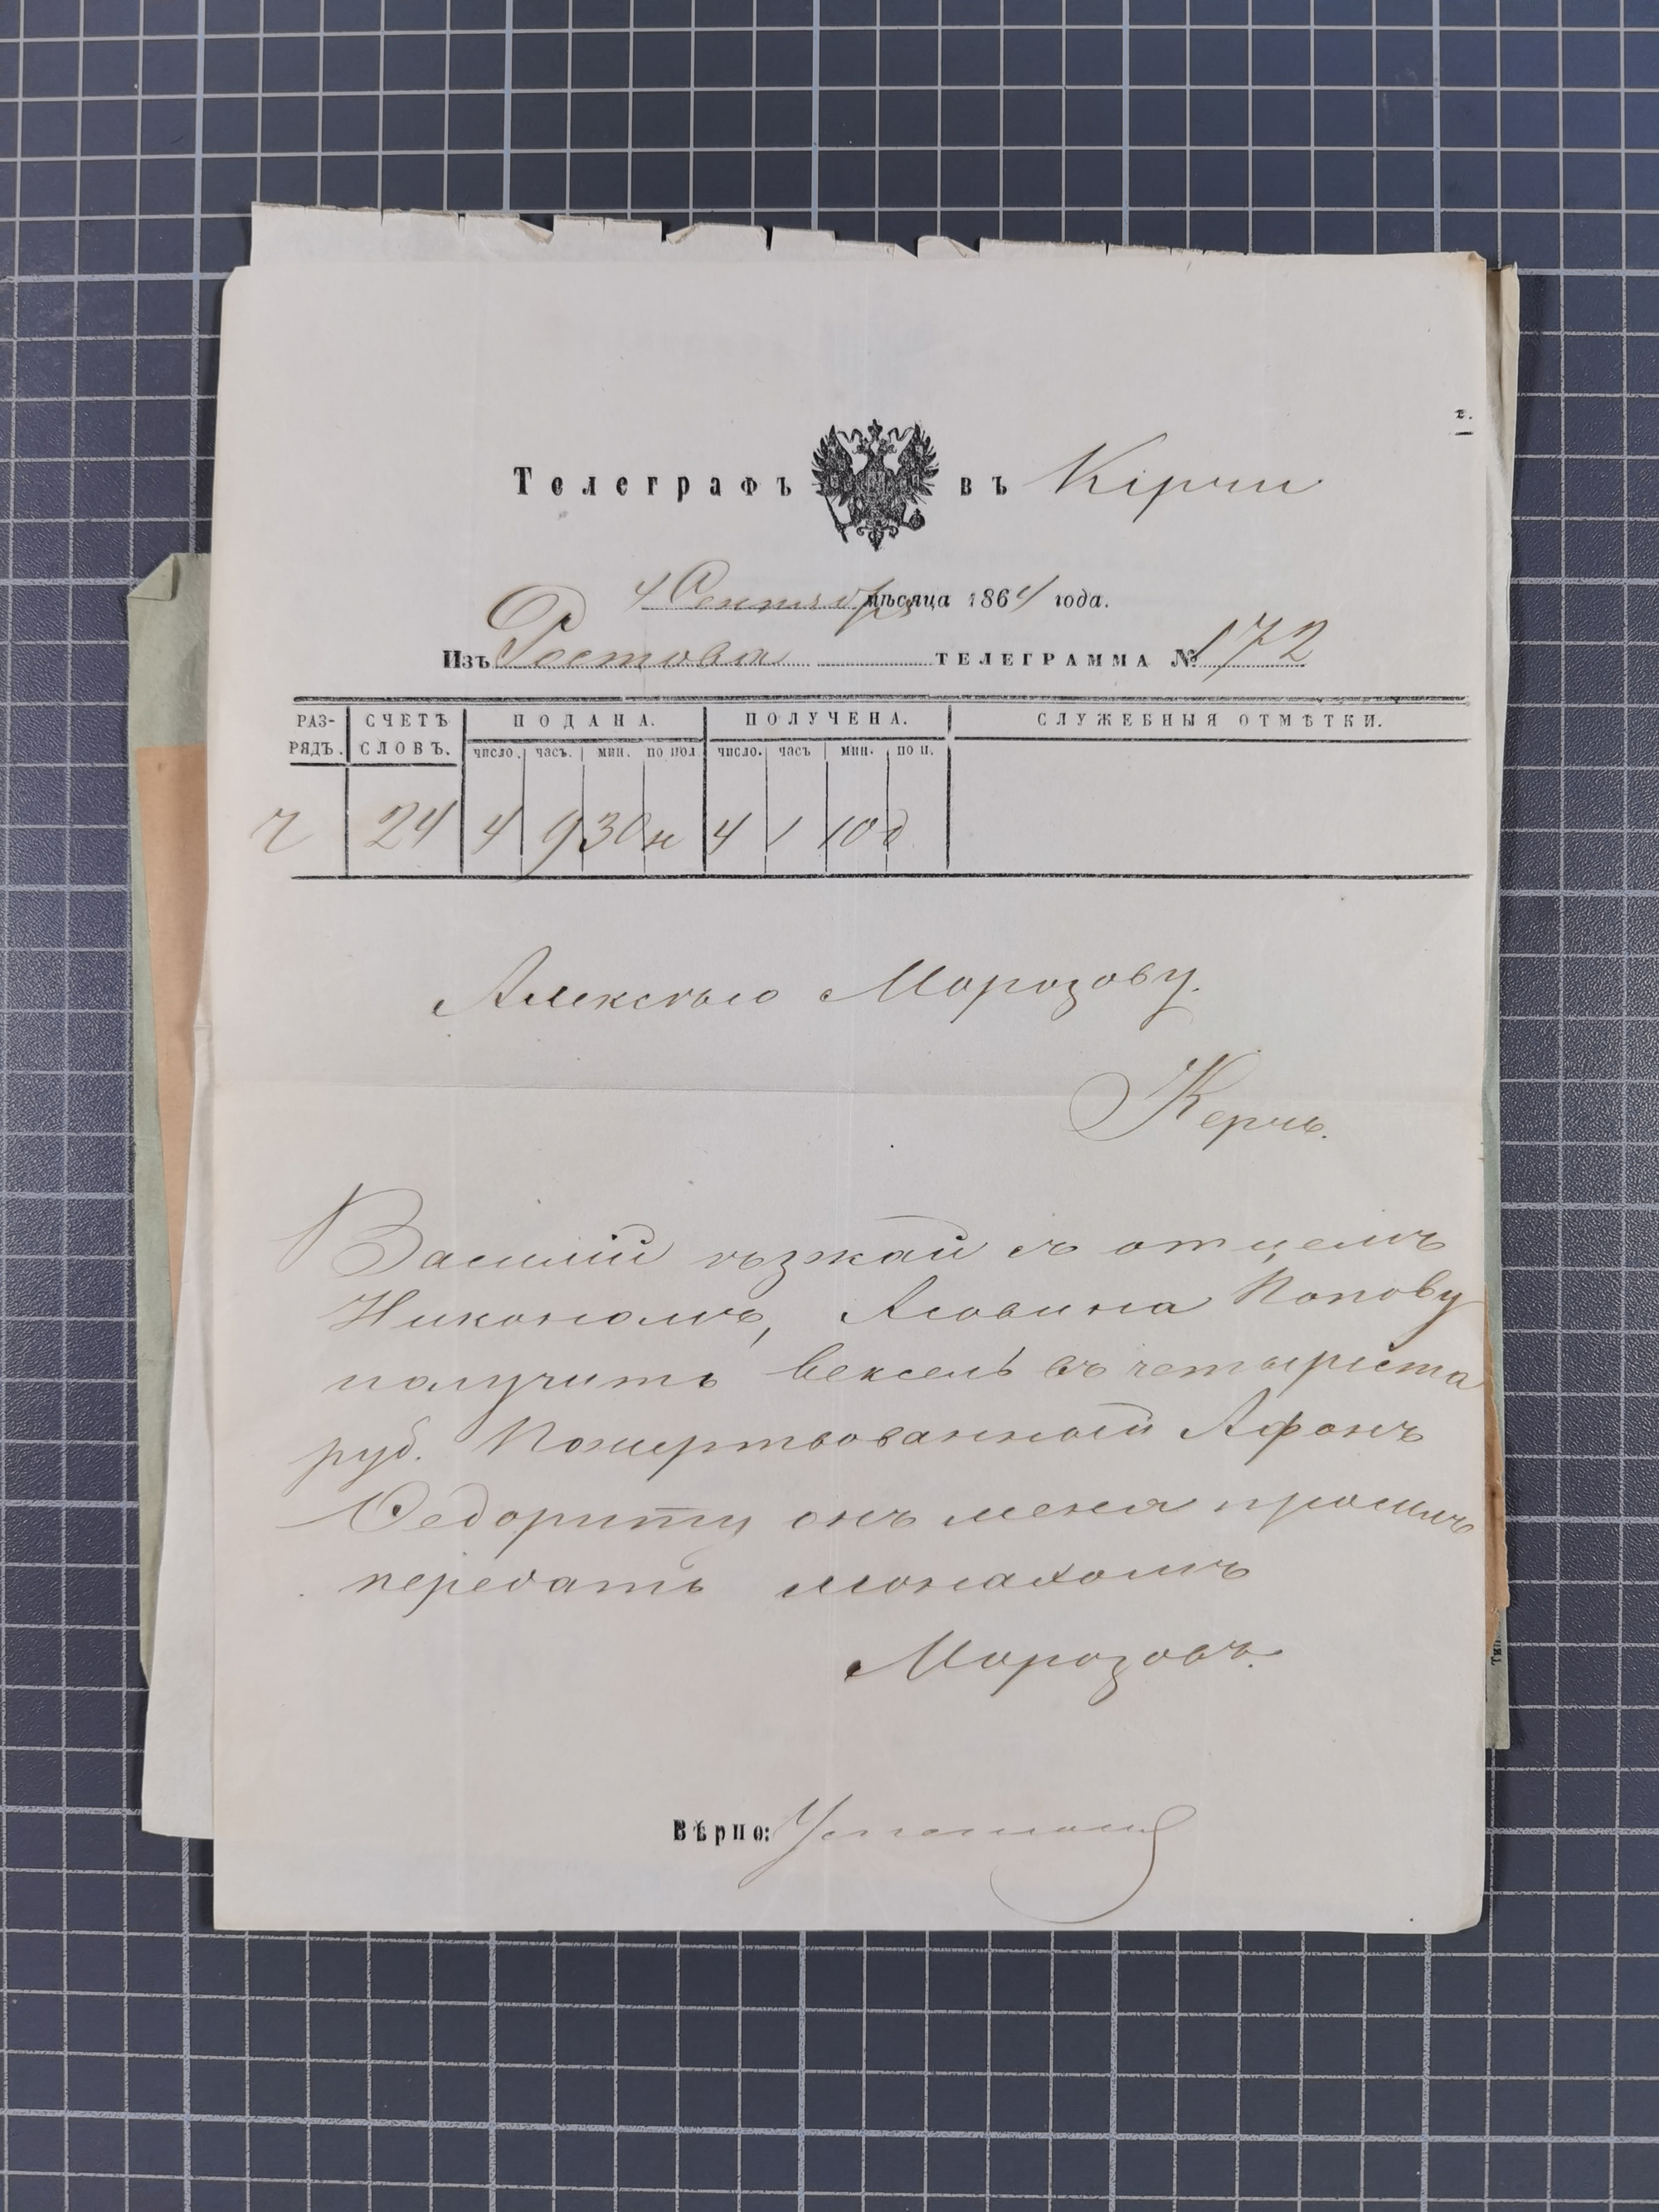 г.
Телеграфъ въ Кірчи
4 Сентября мѣсяца 1864 года.
Изъ Ростова ТЕЛЕГРАММА № 172
РАЗ- СЧЕТЪ ПОДАНА. ПОЛУЧЕНА. СЛУЖЕБНЫЯ ОТМѢТКИ.
РЯДЪ. СЛОВЪ. число. часъ. мин. по пол число. часъ мин. по п.
ч 24 4 9 30 н 4 1 10 д
Алексѣю Морозову.
Керчь.
Василій ѣзжай съ отцемъ
Никономъ, Асовина Попову
получить вексель въ четыреста
руб. Пожертвованный Афонъ
Федориту онъ меня просилъ
передать монахомъ
Морозовъ.
Вѣрно: